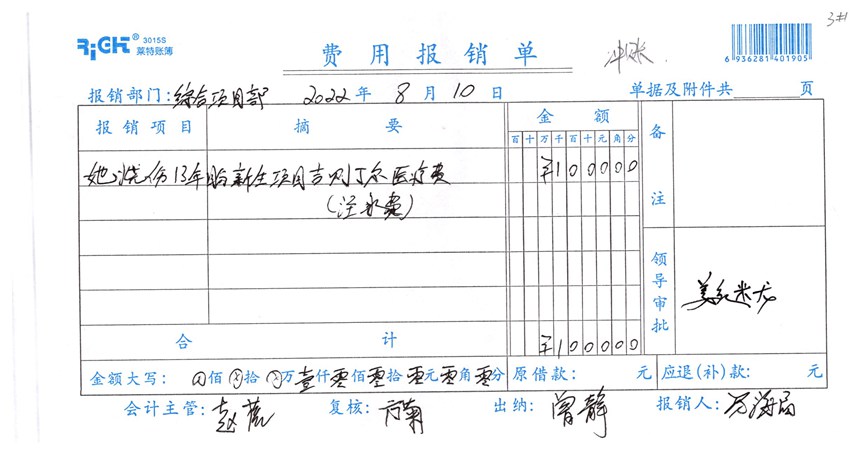 3#
RiGHT® 3015S
莱特账簿
费用报销单
冲账
6 936281 401905
报销部门: 综合项目部 2022年 8月 10日 单据及附件共 页
报销项目 摘要 金额 备注
百 十 万 千 百 十 元 角 分
她 烧伤13年 新生项目吉 丁尔医疗费 ¥100000
费)
领导审批
美 米
合计 ¥100000
金额大写: 佰 拾 万壹仟零佰零拾零元零角零分 原借款: 元 应退(补)款: 元
会计主管: 赵 复核: 方菊 出纳: 曾静 报销人: 万海局